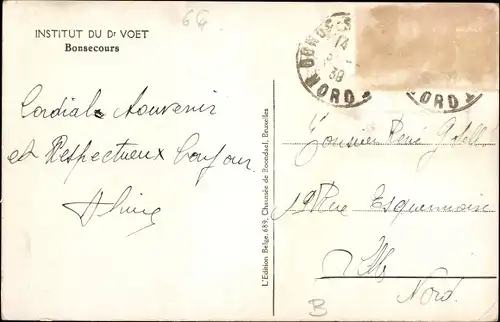 INSTITUT DU Dr VOET
Bonsecours
64
Cordial Souvenir
et Respectueux Bonjour
14
39
NORD
NORD
L'Edition Belge, 689, Chaussée de Boendael, Bruxelles
Monsieur René
19 Rue Esquermoise
Lille
Nord.
B